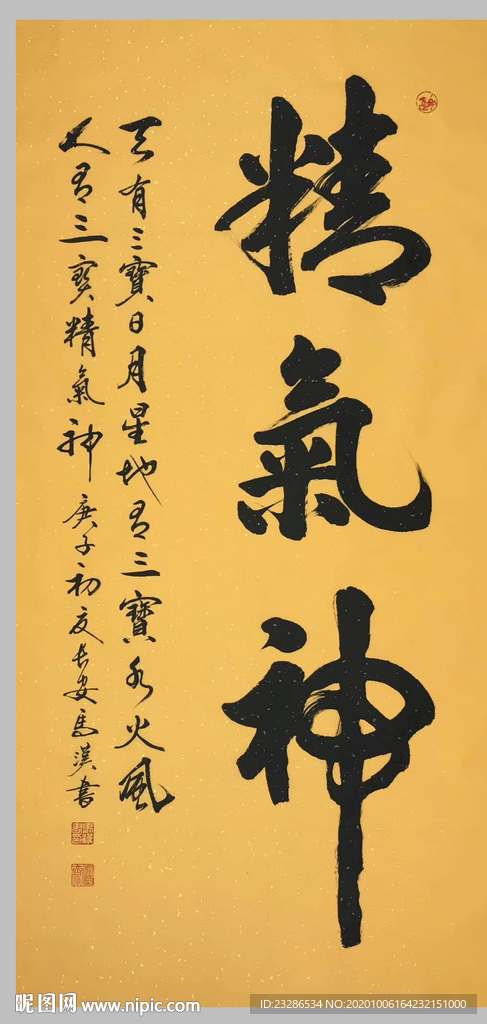 精氣神
天有三寶日月星地有三寶水火風
人有三寶精氣神 庚子初夏長安馬漢書
昵图网 www.nipic.com
ID:23286534 NO:20201006164232151000